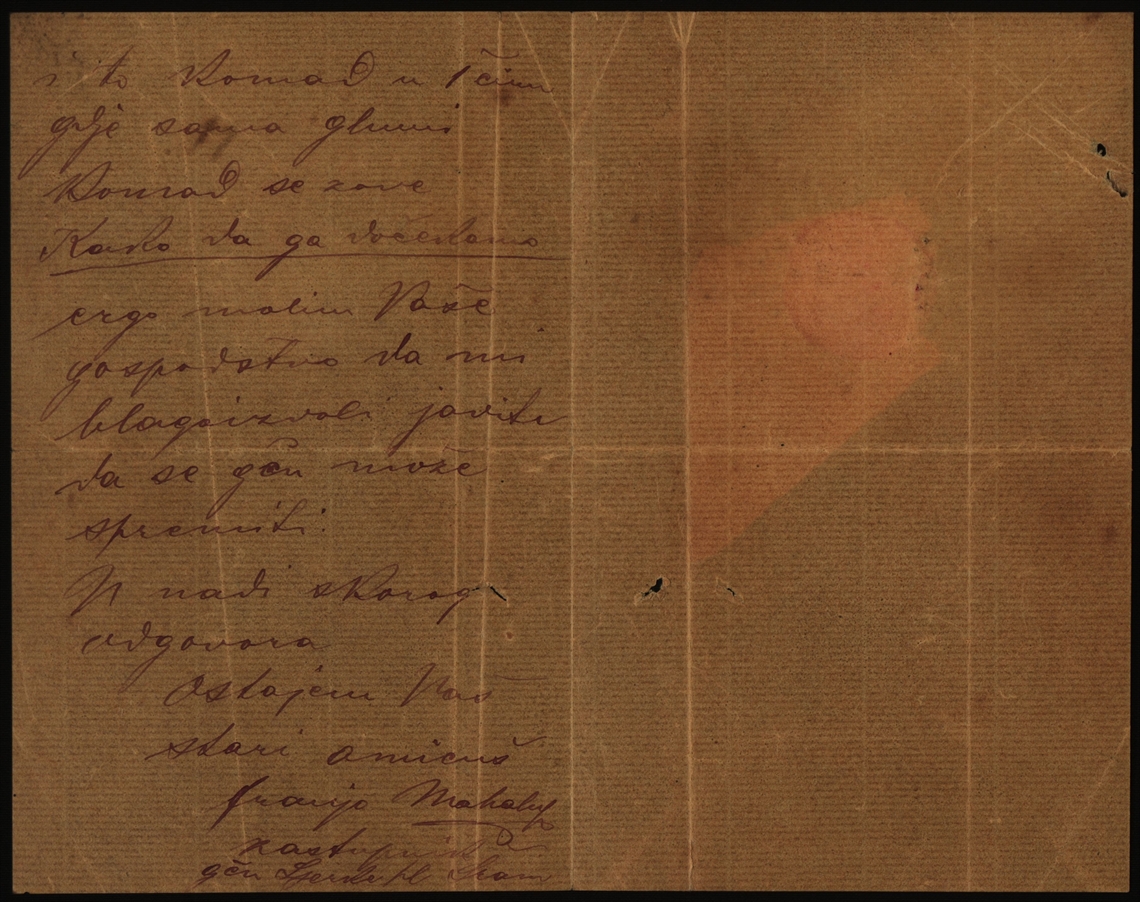 i to Komad u 1 činu
gdje sama glumi
Komad se zove
Kako da ga dočekamo
ergo molim Vaše
gospodstvo da mi
blagoizvoli javiti
da se gčn može
spremiti.
U nadi skorog
odgovora
Ostajem Vaš
stari amicuš
franjo Mahaly
zastupnik
gčn